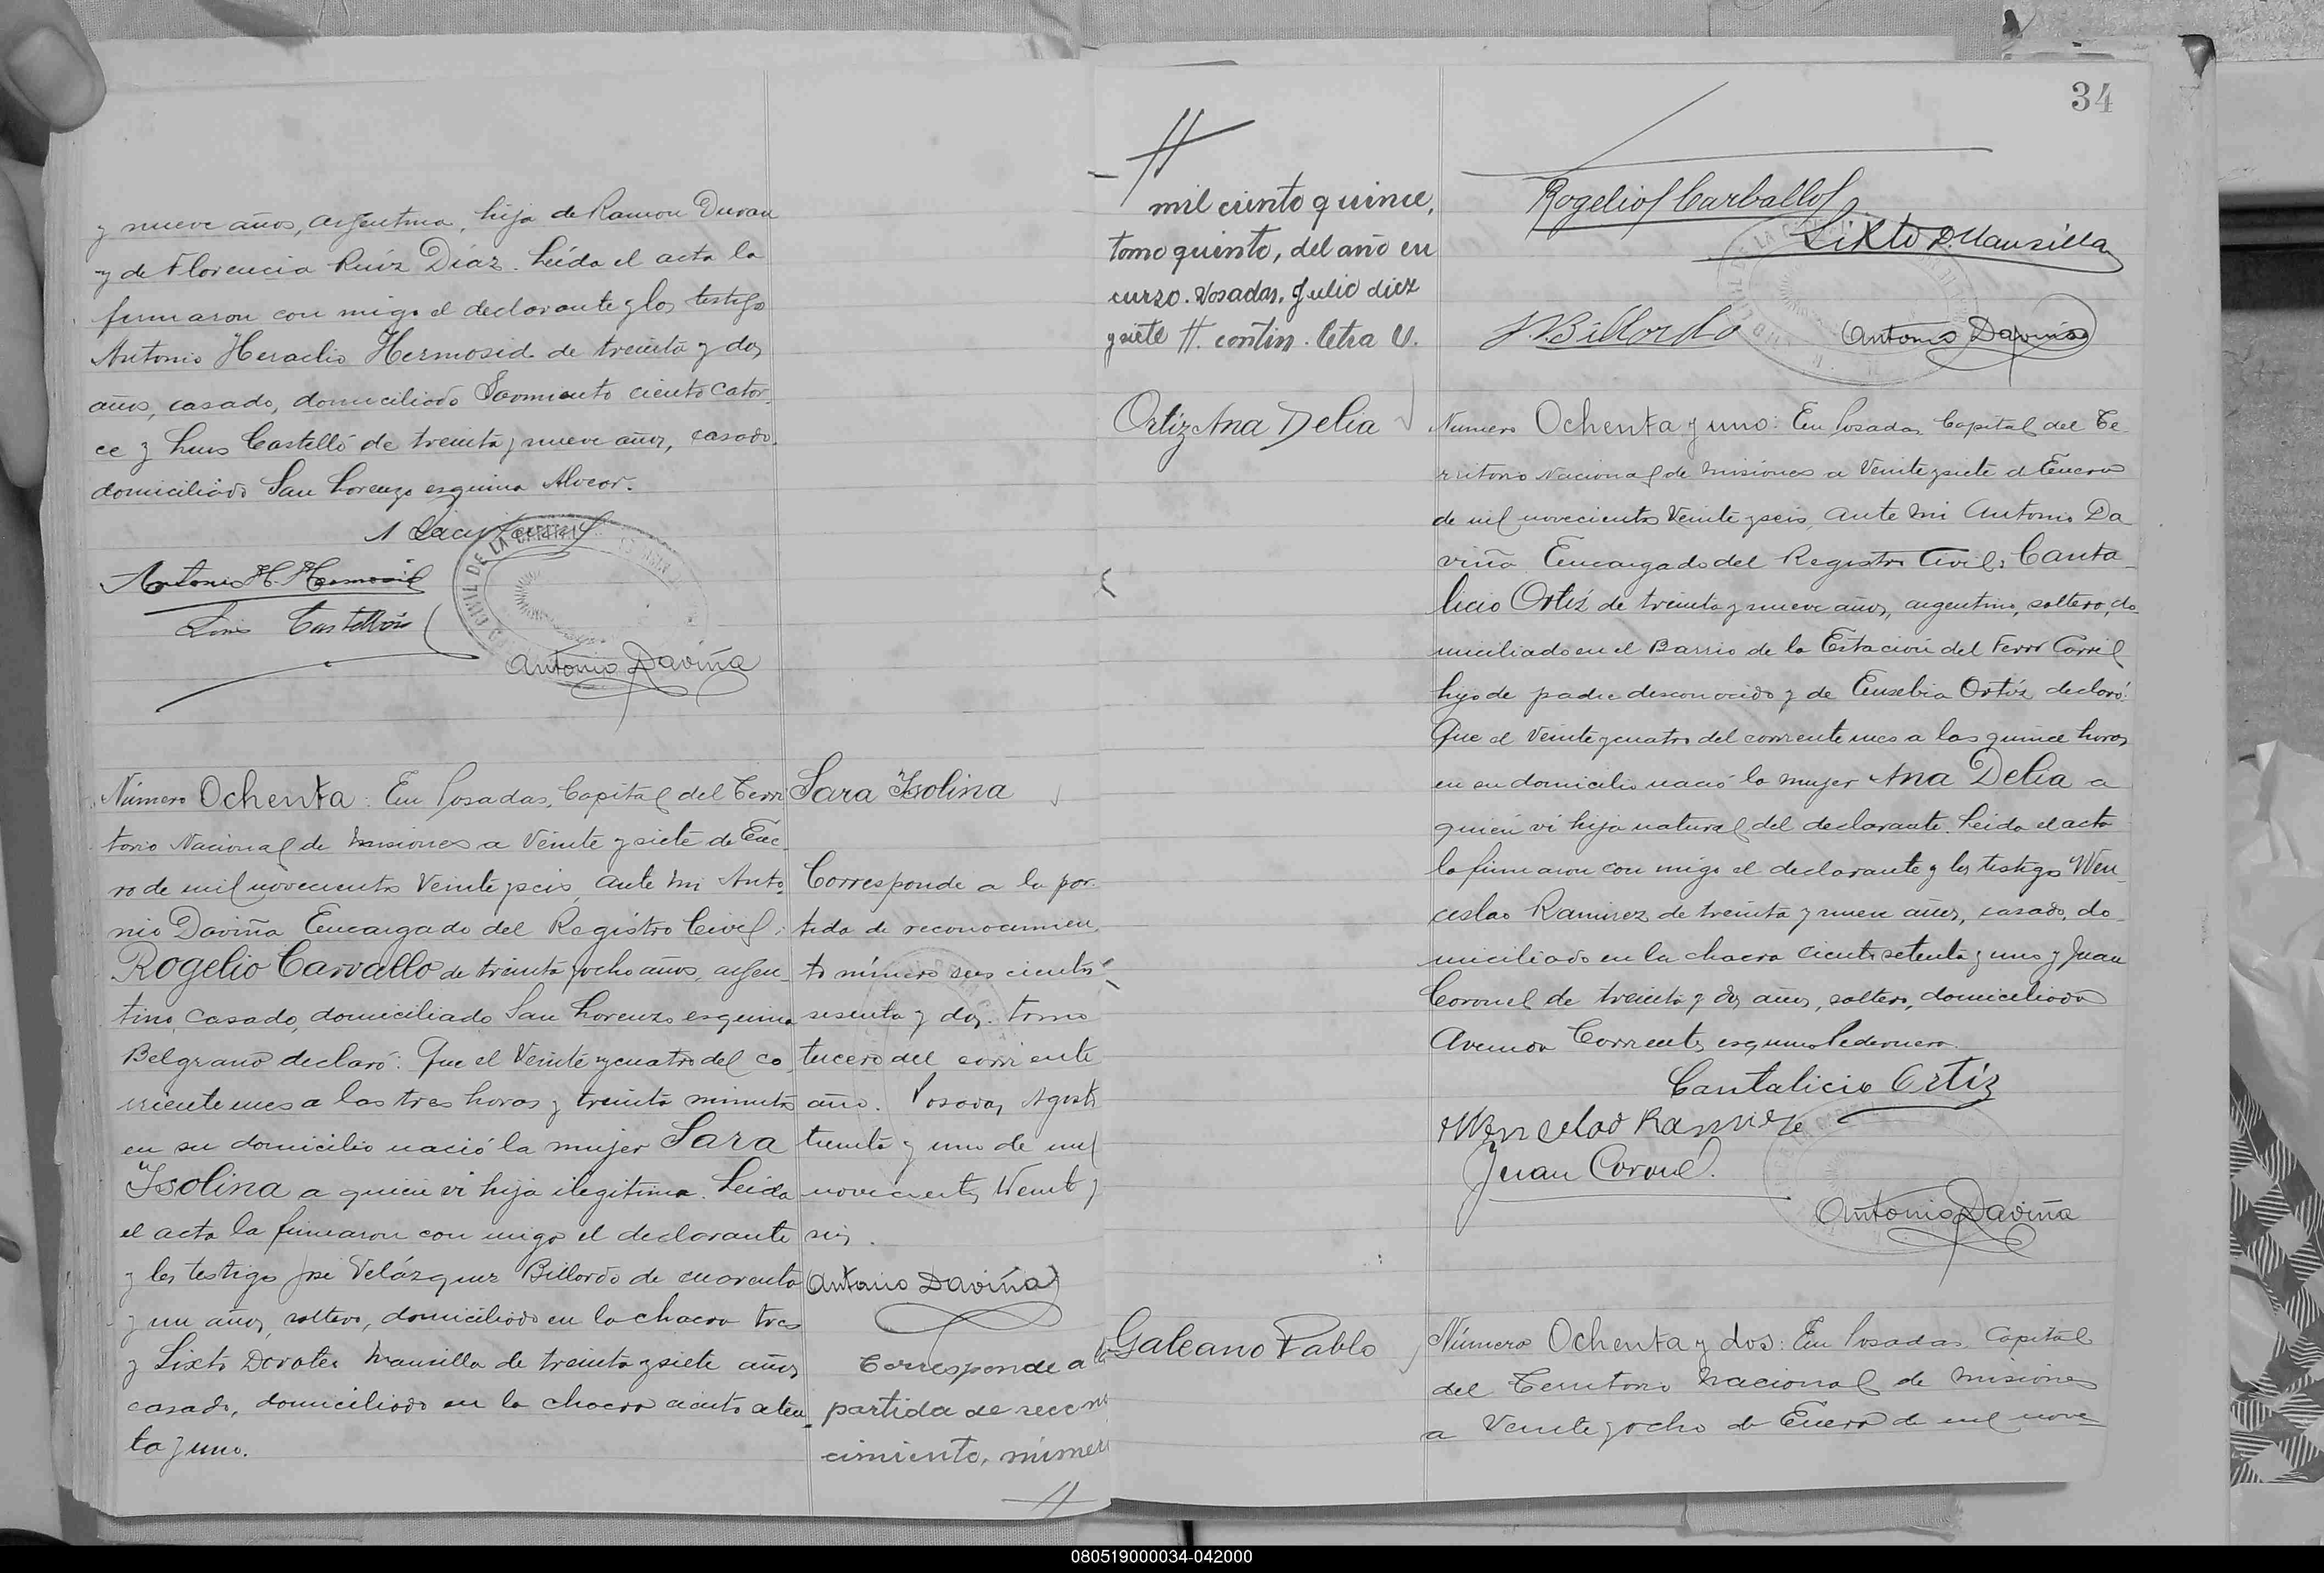 y nueve años, argentina, hija de Ramon Duran
y de Florencia Ruiz Diaz. Leida el acta la
firmaron con migo el declarante y los testigos
Antonio Heraclio Hermosid de treinta y dos
años, casado, domiciliado Sarmiento ciento cator
ce y Luis Castelló de treinta y nueve años, casado
domiciliado San Lorenzo esquina Alvear.
Antonio H. Hermosid
Luis Castelló
Antonio Daviña
Número Ochenta: En Posadas, Capital del Terri
torio Nacional de Misiones a Veinte y siete de Ene
ro de mil novecientos Veinte y seis, ante mi Anto
nio Daviña Encargado del Registro Civil:
Rogelio Carvallo de treinta y ocho años, argen
tino, casado, domiciliado San Lorenzo esquina
Belgrano declaró: Que el Veinte y cuatro del co
rriente mes a las tres horas y treinta minutos
en su domicilio nació la mujer Sara
Isolina a quien vi hija ilegitima. Leida
el acta la firmaron con migo el declarante
y los testigos José Velázquez Billordo de cuarenta
y un años, soltero, domiciliado en la chacra tres
y Sixto Doroteo Mansilla de treinta y siete años
casado, domiciliado en la chacra ciento seten
ta y uno.
Sara Isolina
Corresponde a la par
tida de reconocimien
to número seis cientos
sesenta y dos. tomo
tercero del corriente
año. Posadas, Agosto
treinta y uno de mil
novecientos Veinte y
seis.
Antonio Daviña
Corresponde a la
partida de recono
cimiento, número
//
34
//
mil ciento quince,
tomo quinto, del año en
curso. Posadas, Julio diez
y siete //. contin. letra V.
Rogelio Carballo
Sixto D. Mansilla
J. V. Billordo
Antonio Daviña
Ortiz Ana Delia
Número Ochenta y uno: En Posadas, Capital del Te
rritorio Nacional de Misiones a Veinte y siete d Enero
de mil novecientos Veinte y seis, ante mi Antonio Da
viña Encargado del Registro Civil: Canta
licio Ortiz de treinta y nueve años, argentino, soltero, do
miciliado en el Barrio de la Estación del Ferro Carril
hijo de padre desconocido y de Eusebia Ortíz declaró:
Que el Veinte y cuatro del corriente mes a las quince horas
en su domicilio nació la mujer Ana Delia a
quien vi hija natural del declarante. Leida el acta
la firmaron con migo el declarante y los testigos Wen
ceslao Ramirez de treinta y nueve años, casado, do
miciliado en la chacra ciento setenta y uno y Juan
Coronel de treinta y dos años, soltero, domiciliado
Avenida Corrientes esquina Pedernera.
Cantalicio Ortiz
Wenceslao Ramirez
Juan Coronel.
Antonio Daviña
Galeano Pablo
Número Ochenta y dos: En Posadas, Capital
del Territorio Nacional de Misiones
a Veinte y ocho de Enero de mil nove
080519000034-042000